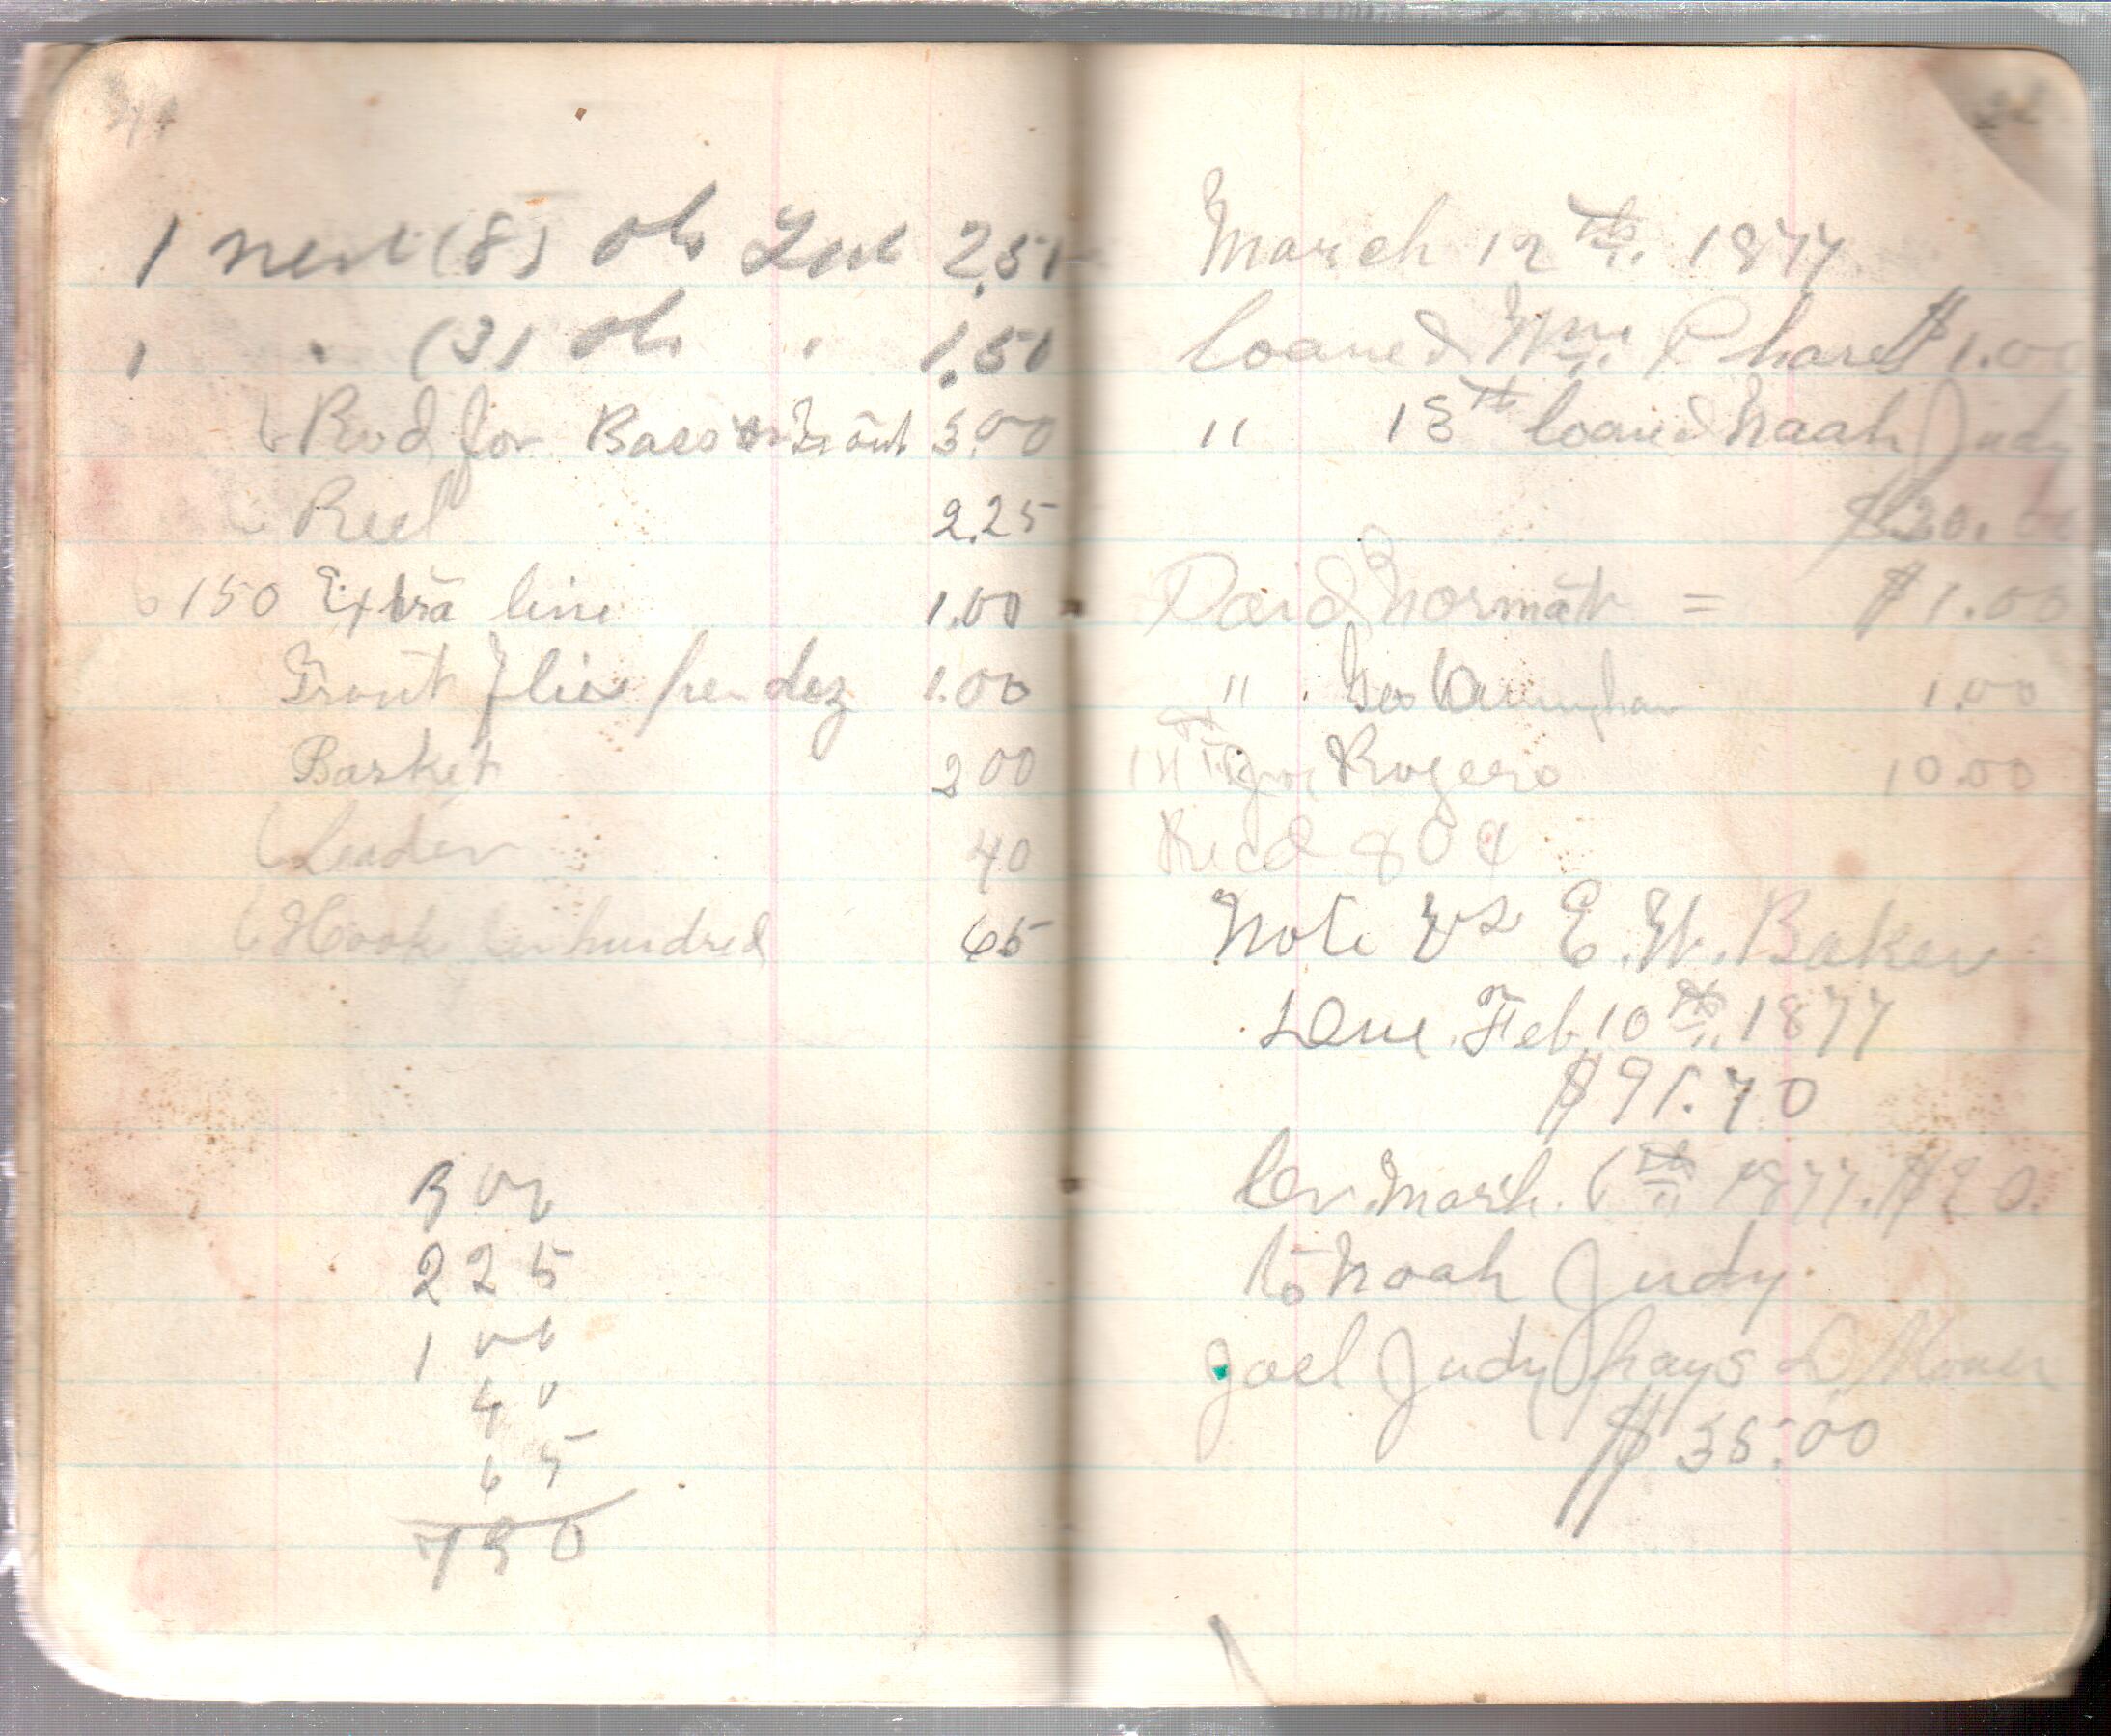 1 nest (8) 2.50
1 " (3) " 1.50
Rod for Bass or Trout 3.00
Reel 2.25
150 Extra line 1.00
Trout flies per doz 1.00
Basket 2 00
Leader 40
Hook per hundred 65
3 00
2 25
1 00
40
65
7 30
March 12th. 1877
loaned Wm. Phares $1.00
" 13th loaned Noah Judy
$20.
Paid = $1.00
" Geo 1.00
Rogers 10.00
Recd 80 ¢
Note vs E. W. Baker
Due Feb 10th, 1877
$91.70
Cr. March. 6th 1877. $20.
to Noah Judy
Joel Judy pays
$35.00